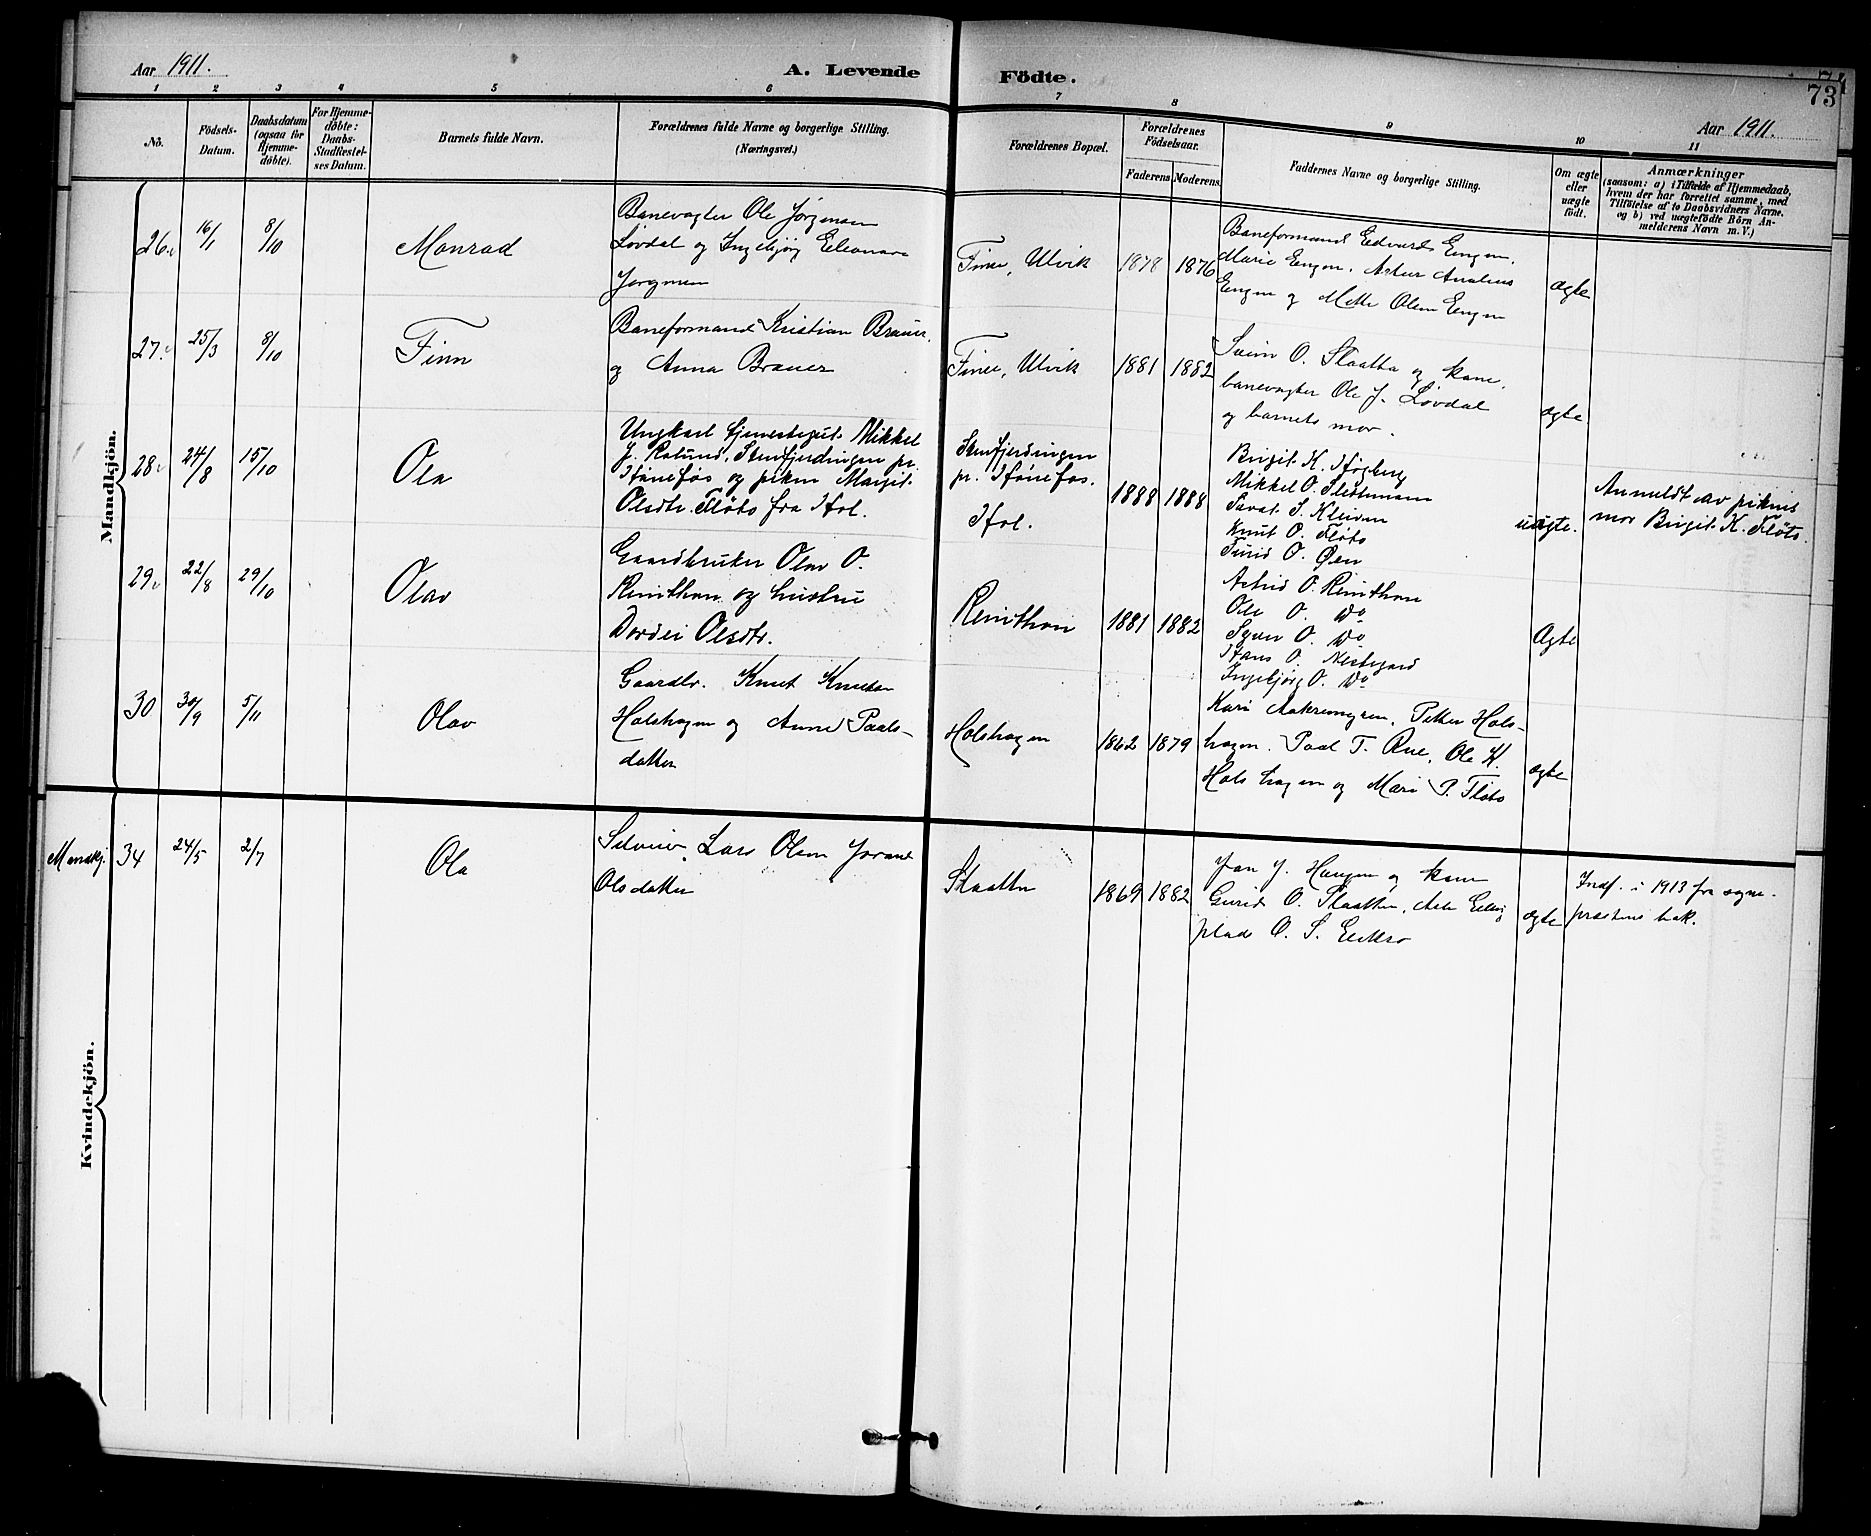 Aar 1911.
A. Levende
Födte.
73
Aar 1911.
1 2 3 4 5 6 7 8 9 10 11
No.
Födsels-
Datum.
Daabsdatum
(ogsaa for
Hjemme-
döbte).
For Hjemme-
döbte:
Daabs-
Stadfæstel-
ses Datum.
Barnets fulde Navn.
Forældrenes fulde Navne og borgerlige Stilling.
(Næringsvei.)
Forældrenes Bopæl.
Forældrenes
Födselsaar.
Faderens Moderens
Faddernes Navne og borgerlige Stilling.
Om ægte
eller
uægte
født.
Anmærkninger
(saasom: a) i Tilfælde af Hjemmedaab,
hvem der har forrettet samme, med
Tilföielse af to Daabsvidners Navne.
og b) ved uægtefödte Börn An-
melderens Navn m. V.)
Mandkjön.
26 16/1 8/10 Monrad
Banevogter Ole Jørgensen
Løvdal og Ingebjørg Eleonore
Jørgensen
Finse, Ulvik 1878 1876
Baneformand Edvard Engen,
Marie Engen, Artur Analius
Engen og Mette Olsen Engen
ægte
27. 25/3 8/10 Finn
Baneformand Kristian Brauer
og Anna Brauer
Finse, Ulvik 1881 1882
Svein O. Slaatta og kone,
banevogter Ole J. Løvdal
og barnets mor.
ægte
28 24/8 15/10 Ola
Ungkarl tjenestegut Mikkel
J. Rolund, Stenfjerdingen pr.
Hønefos og piken Margit
Olsdtr. Fløto fra Hol.
Stenfjerdingen
pr. Hønefos.
Hol.
1888 1888
Birgit K. Høgberg
Mikkel O.
Tarat S. Kleiven
Knut O. Fløto
Turid O. Øen
uægte.
Anmeldt av pikens
mor Birgit K. Fløto.
29 22/8 29/10 Olav
Gaardbruker Olav O.
Reinthon og hustru
Dordei Olsdtr.
Reinthon 1881 1882
Astrid O. Reinthon
Ole O. Do
Sven O. Do
Hans O. Nestegard
Ingebjørg O. Do
Ægte
30 30/9 5/11 Olav
Gaardbr. Knut Knutsen
Holshagen og Anne Paals-
datter
Holshagen 1862 1879
Kari Aakremoen, Petter Hols-
hagen. Paal T. Rue, Ole K.
Holshagen og Mari P. Fløto
ægte
Mandkj. 34 24/5 2/7 Ola
Selveier Lars Olsen Jorand
Olsdatter
Slaatto 1869 1882
Jon J. Haugen og kone
Gurid O. Slaatten, Asle
plads O. S.
ægte
Indf. i 1913 fra sogne-
prestens bok.
Kvindekjön.